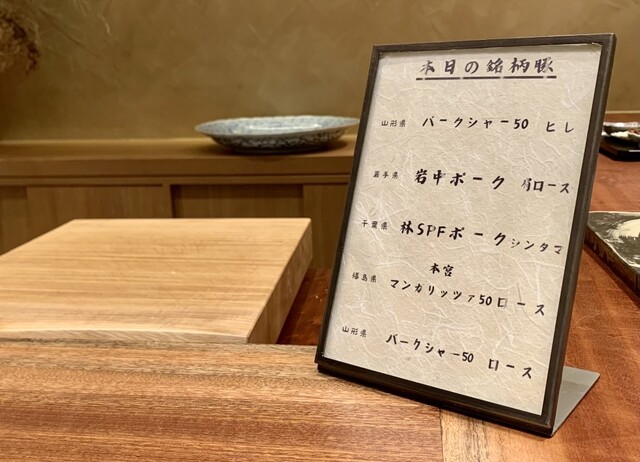 本日の銘柄豚
山形県 バークシャー50 ヒレ
岩手県 岩中ポーク 肩ロース
千葉県 林SPFポークシンタマ
本宮
福島県 マンガリッツァ50ロース
山形県 バークシャー50 ロース